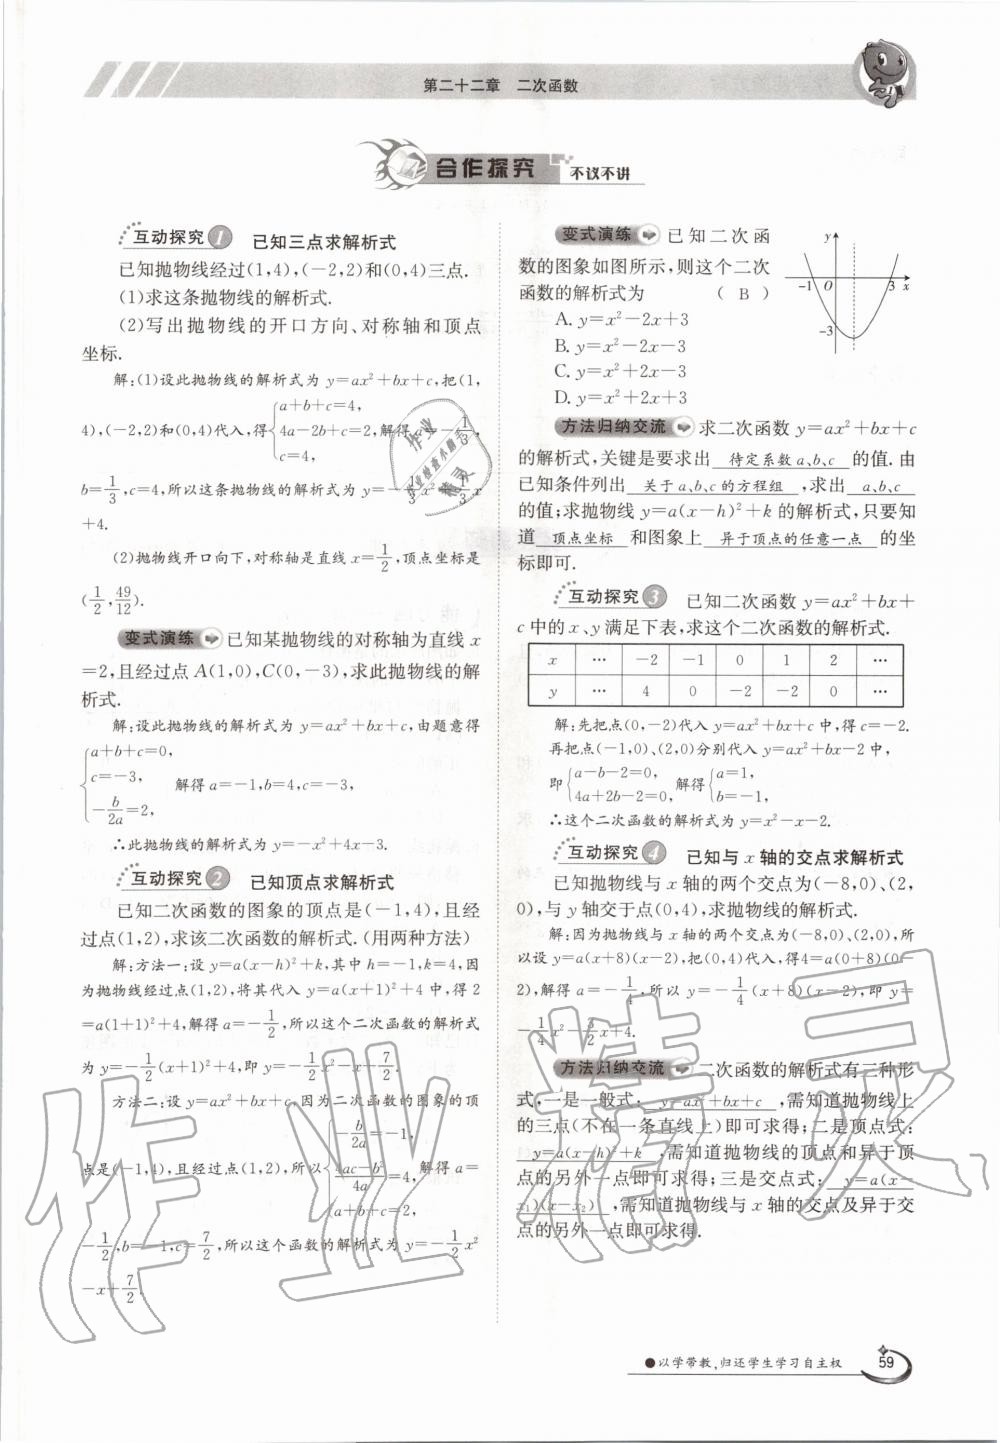 第二十二章 二次函数
合作探究 不议不讲
互动探究1 已知三点求解析式
已知抛物线经过(1,4),(-2,2)和(0,4)三点.
(1)求这条抛物线的解析式.
(2)写出抛物线的开口方向、对称轴和顶点
坐标.
解:(1)设此抛物线的解析式为 y=ax²+bx+c,把(1,
4),(-2,2)和(0,4)代入,得{a+b+c=4, 4a-2b+c=2, c=4, 解得a=-1/3,
b=1/3,c=4,所以这条抛物线的解析式为 y=-1/3x²+1/3x
+4.
(2)抛物线开口向下,对称轴是直线 x=1/2,顶点坐标是
(1/2,49/12).
变式演练 已知某抛物线的对称轴为直线 x
=2,且经过点 A(1,0),C(0,-3),求此抛物线的解
析式.
解:设此抛物线的解析式为 y=ax²+bx+c,由题意得
{a+b+c=0, c=-3, -b/2a=2, 解得 a=-1,b=4,c=-3,
∴此抛物线的解析式为 y=-x²+4x-3.
互动探究2 已知顶点求解析式
已知二次函数的图象的顶点是(-1,4),且经
过点(1,2),求该二次函数的解析式.(用两种方法)
解:方法一:设 y=a(x-h)²+k,其中 h=-1,k=4,因
为抛物线经过点(1,2),将其代入 y=a(x+1)²+4 中,得 2
=a(1+1)²+4,解得 a=-1/2,所以这个二次函数的解析式
为 y=-1/2(x+1)²+4,即 y=-1/2x²-x+7/2.
方法二:设 y=ax²+bx+c,因为二次函数的图象的顶
点是(-1,4),且经过点(1,2),所以{-b/2a=-1, 4ac-b²/4a=4, a+b+c=2, 解得 a=
-1/2,b=-1,c=7/2,所以这个函数的解析式为 y=-1/2x²
-x+7/2.
变式演练 已知二次函
数的图象如图所示,则这个二次
函数的解析式为 ( B )
A. y=x²-2x+3
B. y=x²-2x-3
C. y=x²+2x-3
D. y=x²+2x+3
y
-1 O 3 x
-3
方法归纳交流 求二次函数 y=ax²+bx+c
的解析式,关键是要求出 待定系数 a、b、c 的值.由
已知条件列出 关于 a、b、c 的方程组 ,求出 a、b、c
的值;求抛物线 y=a(x-h)²+k 的解析式,只要知
道 顶点坐标 和图象上 异于顶点的任意一点 的坐
标即可.
互动探究3 已知二次函数 y=ax²+bx+
c 中的 x、y 满足下表,求这个二次函数的解析式.
x … -2 -1 0 1 2 …
y … 4 0 -2 -2 0 …
解:先把点(0,-2)代入 y=ax²+bx+c 中,得 c=-2.
再把点(-1,0)、(2,0)分别代入 y=ax²+bx-2 中,
即{a-b-2=0, 4a+2b-2=0, 解得{a=1, b=-1,
∴这个二次函数的解析式为 y=x²-x-2.
互动探究4 已知与 x 轴的交点求解析式
已知抛物线与 x 轴的两个交点为(-8,0)、(2,
0),与 y 轴交于点(0,4),求抛物线的解析式.
解:因为抛物线与 x 轴的两个交点为(-8,0)、(2,0),所
以设 y=a(x+8)(x-2),把(0,4)代入,得4=a(0+8)(0-
2),解得 a=-1/4,所以 y=-1/4(x+8)(x-2),即 y=
-1/4x²-3/2x+4.
方法归纳交流 二次函数的解析式有三种形
式,一是一般式: y=ax²+bx+c ,需知道抛物线上
的三点(不在一条直线上)即可求得;二是顶点式:
y=a(x-h)²+k ,需知道抛物线的顶点和异于顶
点的另外一点即可求得;三是交点式: y=a(x-
x₁)(x-x₂) ,需知道抛物线与 x 轴的交点及异于交
点的另外一点即可求得.
●以学带教,归还学生学习自主权
59
作业精灵